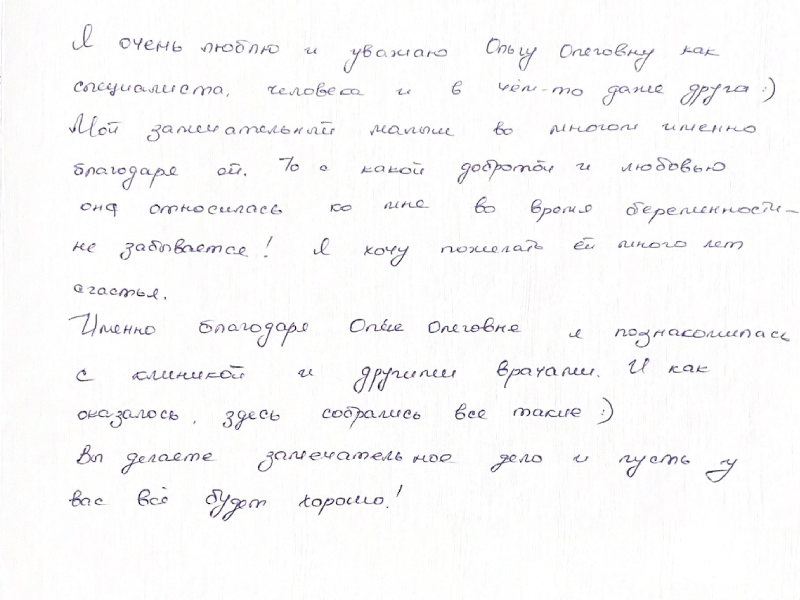 Я очень люблю и уважаю Ольгу Олеговну как
специалиста, человека и в чём-то даже друга :)
Мой замечательный малыш во многом именно
благодаря ей. То с какой добротой и любовью
она относилась ко мне во время беременности -
не забывается! Я хочу пожелать ей много лет
счастья.
Именно благодаря Ольге Олеговне я познакомилась
с клиникой и другими врачами. И как
оказалось, здесь собрались все такие :)
Вы делаете замечательное дело и пусть у
вас всё будет хорошо!